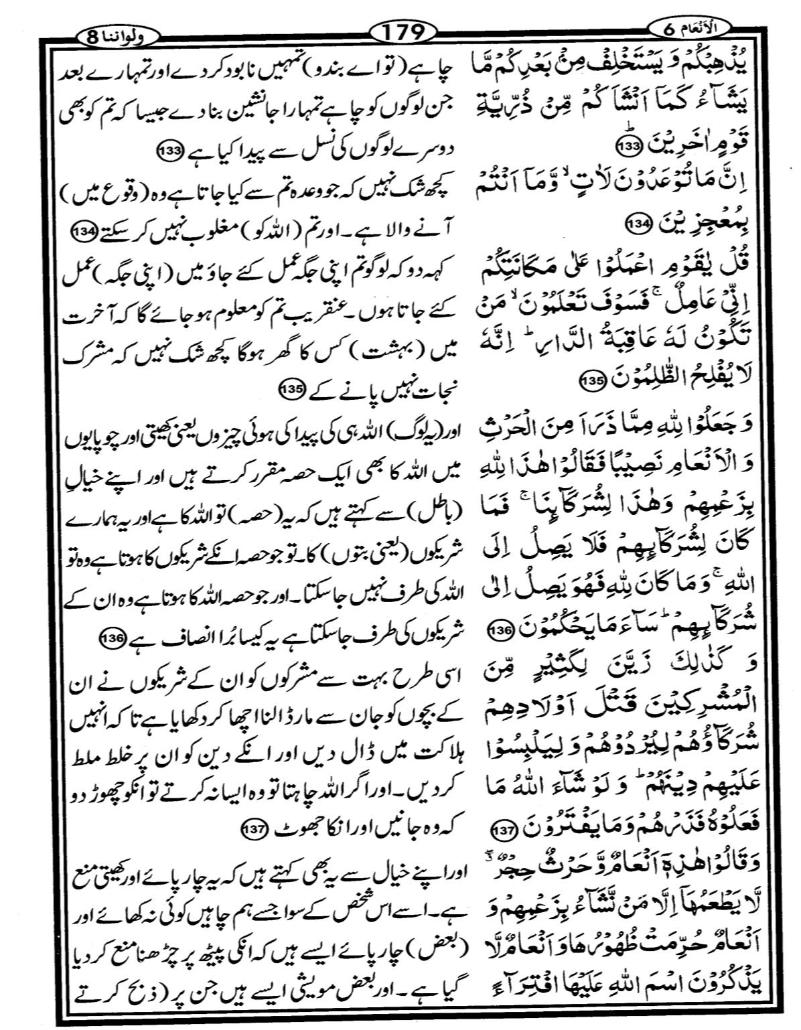 الْاَنْعَام 6
179
ولواننا 8
يُذْهِبْكُمْ وَيَسْتَخْلِفْ مِنْۢ بَعْدِكُمْ مَّا
يَشَآءُ كَمَآ اَنْشَاَكُمْ مِّنْ ذُرِّيَّةِ
قَوْمٍ اٰخَرِيْنَ ؕ 133
اِنَّ مَا تُوْعَدُوْنَ لَاٰتٍ ۙ وَّمَآ اَنْتُمْ
بِمُعْجِزِيْنَ 134
قُلْ يٰقَوْمِ اعْمَلُوْا عَلٰى مَكَانَتِكُمْ
اِنِّىْ عَامِلٌ ۚ فَسَوْفَ تَعْلَمُوْنَ ۙ مَنْ
تَكُوْنُ لَهٗ عَاقِبَةُ الدَّارِ ؕ اِنَّهٗ
لَا يُفْلِحُ الظّٰلِمُوْنَ 135
وَجَعَلُوْا لِلّٰهِ مِمَّا ذَرَاَ مِنَ الْحَرْثِ
وَالْاَنْعَامِ نَصِيْبًا فَقَالُوْا هٰذَا لِلّٰهِ
بِزَعْمِهِمْ وَهٰذَا لِشُرَكَآئِنَا ۚ فَمَا
كَانَ لِشُرَكَآئِهِمْ فَلَا يَصِلُ اِلَى
اللّٰهِ ۚ وَمَا كَانَ لِلّٰهِ فَهُوَ يَصِلُ اِلٰى
شُرَكَآئِهِمْ ؕ سَآءَ مَا يَحْكُمُوْنَ 136
وَكَذٰلِكَ زَيَّنَ لِكَثِيْرٍ مِّنَ
الْمُشْرِكِيْنَ قَتْلَ اَوْلَادِهِمْ
شُرَكَآؤُهُمْ لِيُرْدُوْهُمْ وَلِيَلْبِسُوْا
عَلَيْهِمْ دِيْنَهُمْ ؕ وَلَوْ شَآءَ اللّٰهُ مَا
فَعَلُوْهُ فَذَرْهُمْ وَمَا يَفْتَرُوْنَ 137
وَقَالُوْا هٰذِهٖٓ اَنْعَامٌ وَّحَرْثٌ حِجْرٌ ۖ
لَّا يَطْعَمُهَآ اِلَّا مَنْ نَّشَآءُ بِزَعْمِهِمْ وَ
اَنْعَامٌ حُرِّمَتْ ظُهُوْرُهَا وَاَنْعَامٌ لَّا
يَذْكُرُوْنَ اسْمَ اللّٰهِ عَلَيْهَا افْتِرَآءً
چاہے (تو اے بندو) تمہیں نابود کر دے اور تمہارے بعد
جن لوگوں کو چاہے تمہارا جانشین بنا دے جیسا کہ تم کو بھی
دوسرے لوگوں کی نسل سے پیدا کیا ہے 133
کچھ شک نہیں کہ جو وعدہ تم سے کیا جاتا ہے وہ (وقوع میں)
آنے والا ہے۔ اور تم (اللہ کو) مغلوب نہیں کر سکتے 134
کہہ دو کہ لوگو تم اپنی جگہ عمل کئے جاؤ میں (اپنی جگہ) عمل
کئے جاتا ہوں۔ عنقریب تم کو معلوم ہو جائے گا کہ آخرت
میں (بہشت) کس کا گھر ہوگا کچھ شک نہیں کہ مشرک
نجات نہیں پانے کے 135
اور (یہ لوگ) اللہ ہی کی پیدا کی ہوئی چیزوں یعنی کھیتی اور چوپایوں
میں اللہ کا بھی ایک حصہ مقرر کرتے ہیں اور اپنے خیالِ
(باطل) سے کہتے ہیں کہ یہ (حصہ) تو اللہ کا ہے اور یہ ہمارے
شریکوں (یعنی بتوں) کا۔ تو جو حصہ انکے شریکوں کا ہوتا ہے وہ تو
اللہ کی طرف نہیں جا سکتا۔ اور جو حصہ اللہ کا ہوتا ہے وہ ان کے
شریکوں کی طرف جا سکتا ہے یہ کیسا بُرا انصاف ہے 136
اسی طرح بہت سے مشرکوں کو ان کے شریکوں نے ان
کے بچوں کو جان سے مار ڈالنا اچھا کر دکھایا ہے تا کہ انہیں
ہلاکت میں ڈال دیں اور انکے دین کو ان پر خلط ملط
کر دیں۔ اور اگر اللہ چاہتا تو وہ ایسا نہ کرتے تو انکو چھوڑ دو
کہ وہ جانیں اور انکا جھوٹ 137
اور اپنے خیال سے یہ بھی کہتے ہیں کہ یہ چارپائے اور کھیتی منع
ہے۔ اسے اس شخص کے سوا جسے ہم چاہیں کوئی نہ کھائے اور
(بعض) چارپائے ایسے ہیں کہ انکی پیٹھ پر چڑھنا منع کر دیا
گیا ہے۔ اور بعض مویشی ایسے ہیں جن پر (ذبح کرتے